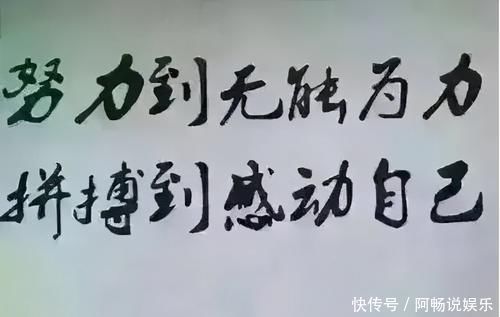 努力到无能为力
拼搏到感动自己
快传号/阿畅说娱乐